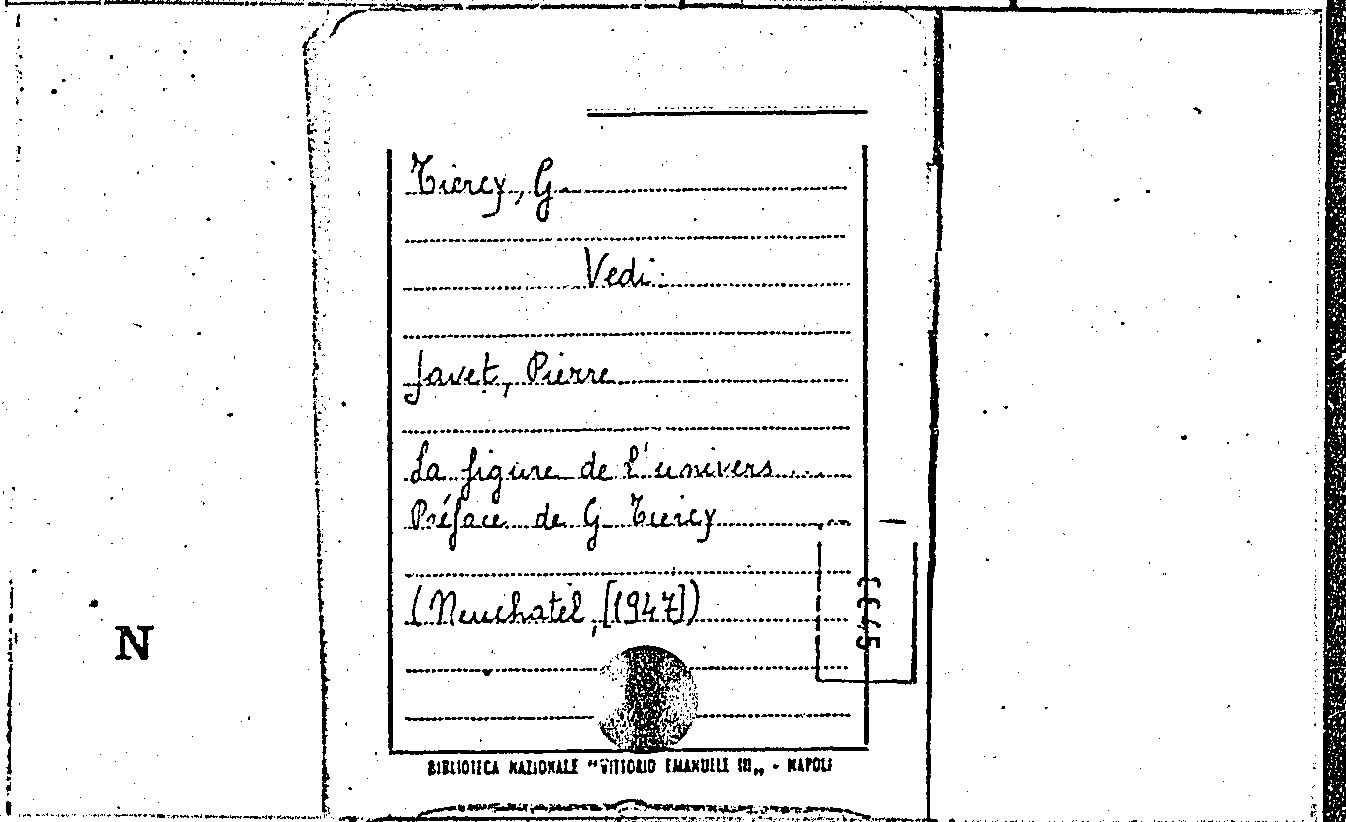 Tiercy, G.
Vedi:
Javet, Pierre
La figure de l'univers...
Préface de G. Tiercy
(Neuchatel, [1947])
N
BIBLIOTECA NAZIONALE "VITTORIO EMANUELE III„ - NAPOLI